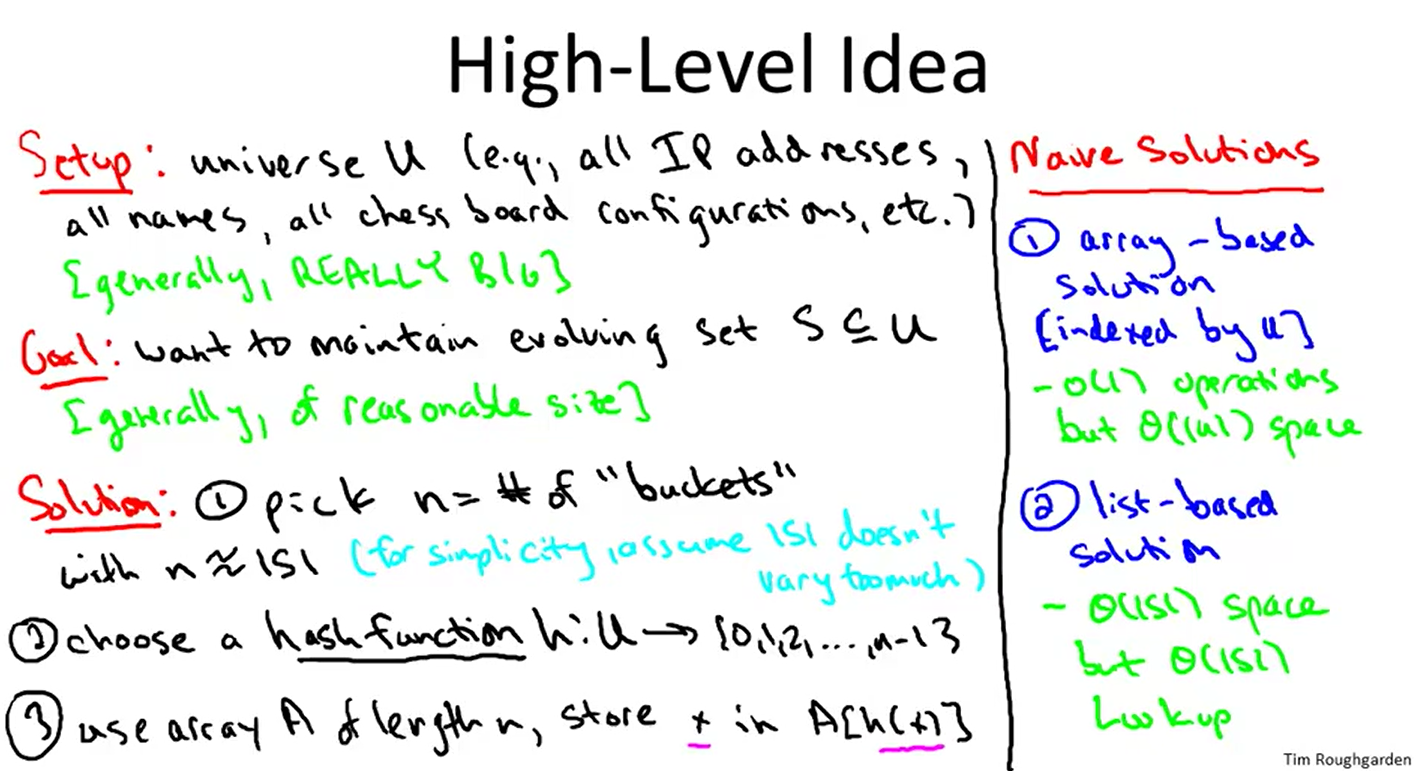 High-Level Idea
Setup: universe U (e.g., all IP addresses,
all names, all chess board configurations, etc.)
[generally, REALLY BIG]
Goal: want to maintain evolving set S ⊆ U
[generally, of reasonable size]
Solution: ① pick n = # of "buckets"
with n ≈ |S| (for simplicity, assume |S| doesn't
vary too much)
② choose a hash function h: U → {0,1,2,...,n-1}
③ use array A of length n, store x in A[h(x)]
Naive Solutions
① array-based
solution
[indexed by u]
- O(1) operations
but Θ(|U|) space
② list-based
solution
- Θ(|S|) space
but Θ(|S|)
Lookup
Tim Roughgarden